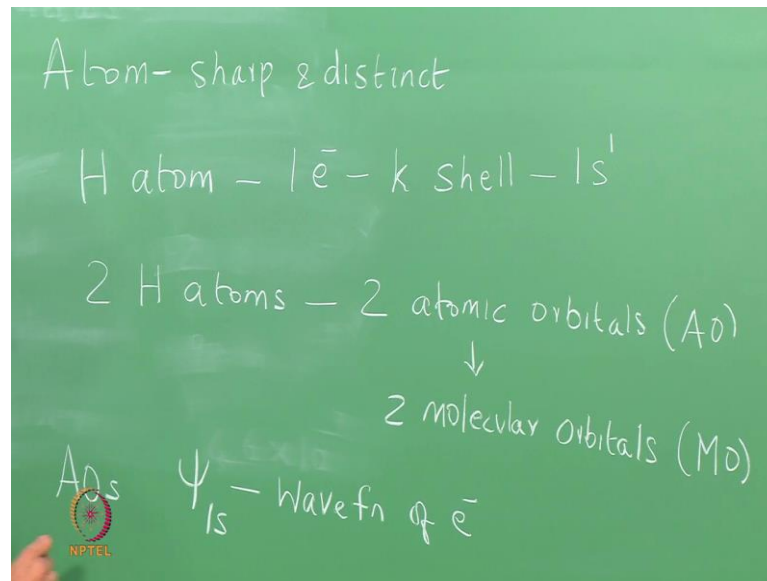 Atom - sharp & distinct
H atom - 1 e̅ - K shell - 1s¹
2 H atoms - 2 atomic orbitals (AO)
↓
2 molecular orbitals (MO)
AOs Ψ1s - wavefn of e̅
NPTEL